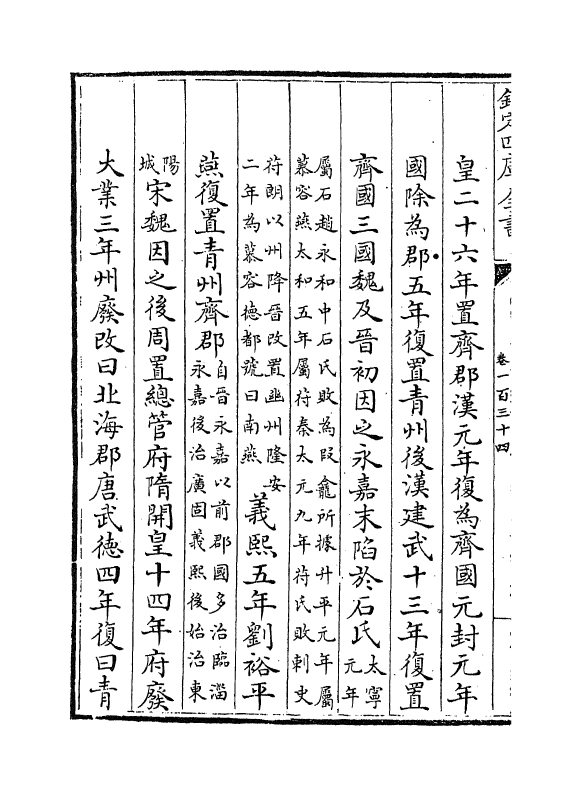 欽定四庫全書
卷一百三十四
皇二十六年置齊郡漢元年復為齊國元封元年
國除為郡五年復置青州後漢建武十三年復置
齊國三國魏及晉初因之永嘉末陷於石氏太寧元年
屬石趙永和中石氏敗為段龕所據升平元年屬
慕容燕太和五年屬符秦太元九年符氏敗刺史
符朗以州降晉改置幽州隆安二年為慕容德都號曰南燕義熙五年劉裕平
燕復置青州齊郡自晉永嘉以前郡國多治臨淄永嘉後治廣固義熙後始治東
陽城宋魏因之後周置總管府隋開皇十四年府廢
大業三年州廢改曰北海郡唐武德四年復曰青